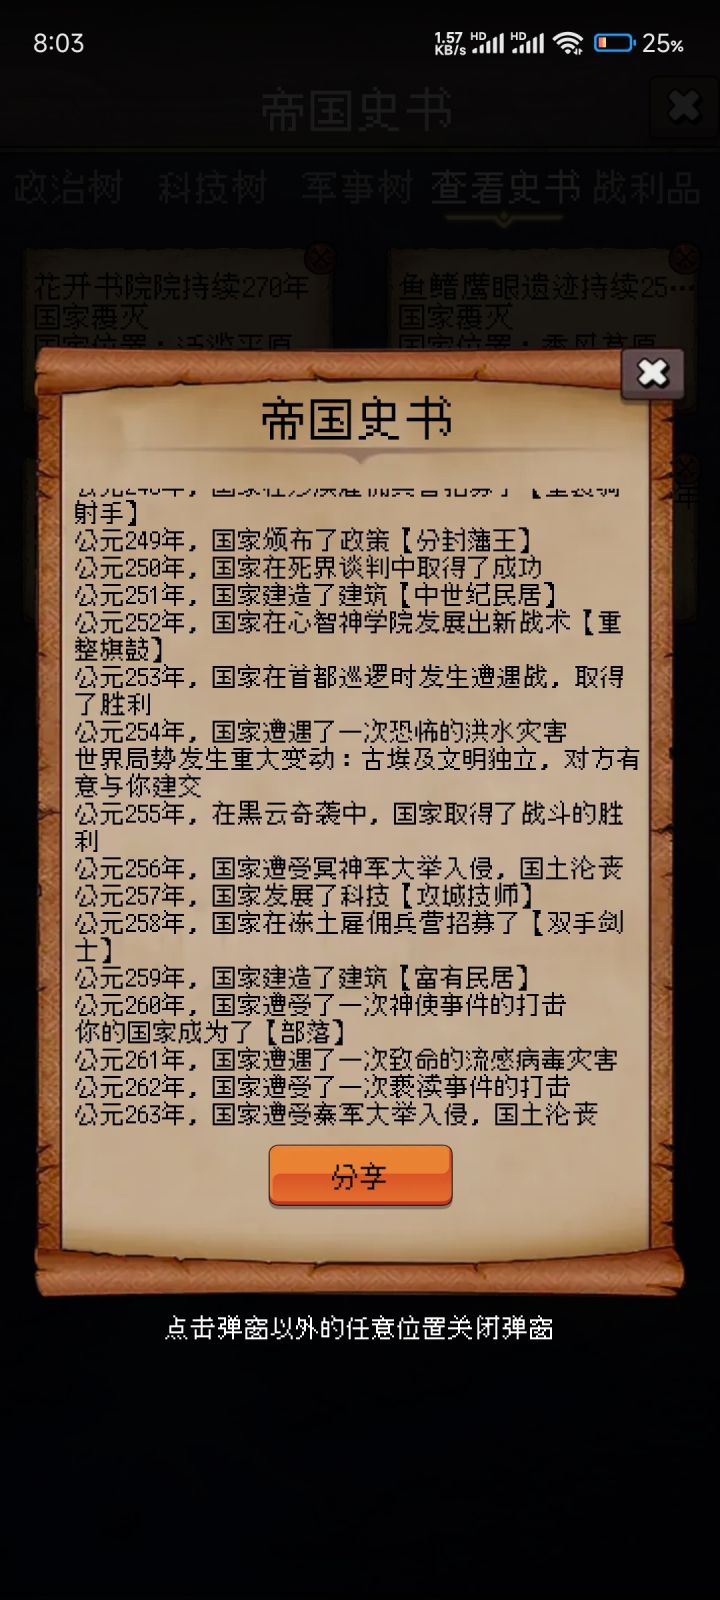 8:03
1.57 KB/s HD HD 25%
帝国史书
政治树 科技树 军事树 查看史书 战利品
花开书院院持续270年
国家覆灭
鱼鳍鹰眼遗迹持续25…
国家覆灭
帝国史书
射手】
公元249年，国家颁布了政策【分封藩王】
公元250年，国家在死界谈判中取得了成功
公元251年，国家建造了建筑【中世纪民居】
公元252年，国家在心智神学院发展出新战术【重
整旗鼓】
公元253年，国家在首都巡逻时发生遭遇战，取得
了胜利
公元254年，国家遭遇了一次恐怖的洪水灾害
世界局势发生重大变动：古埃及文明独立，对方有
意与你建交
公元255年，在黑云奇袭中，国家取得了战斗的胜
利
公元256年，国家遭受冥神军大举入侵，国土沦丧
公元257年，国家发展了科技【攻城技师】
公元258年，国家在冻土雇佣兵营招募了【双手剑
士】
公元259年，国家建造了建筑【富有民居】
公元260年，国家遭受了一次神使事件的打击
你的国家成为了【部落】
公元261年，国家遭遇了一次致命的流感病毒灾害
公元262年，国家遭受了一次亵渎事件的打击
公元263年，国家遭受秦军大举入侵，国土沦丧
分享
点击弹窗以外的任意位置关闭弹窗